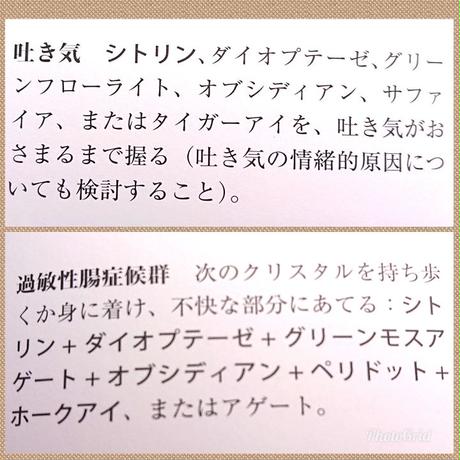 吐き気　シトリン、ダイオプテーゼ、グリー
ンフローライト、オブシディアン、サファ
イア、またはタイガーアイを、吐き気がお
さまるまで握る（吐き気の情緒的原因につ
いても検討すること）。
過敏性腸症候群　次のクリスタルを持ち歩
くか身に着け、不快な部分にあてる：シト
リン＋ダイオプテーゼ＋グリーンモスア
ゲート＋オブシディアン＋ペリドット＋
ホークアイ、またはアゲート。
PhotoGrid